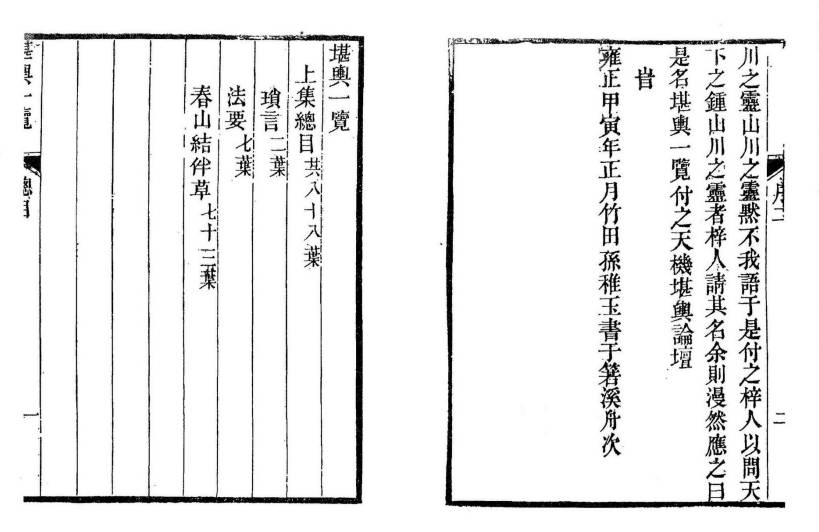 序二
二
川之靈山川之靈黙不我語于是付之梓人以問天
下之鍾山川之靈者梓人請其名余則漫然應之曰
是名堪輿一覽付之天機堪輿論壇
旹
雍正甲寅年正月竹田孫稚玉書于箬溪舟次
堪輿一覽
上集總目共八十八葉
瑣言二葉
法要七葉
春山結伴草七十三葉
堪輿一覽
總目
一